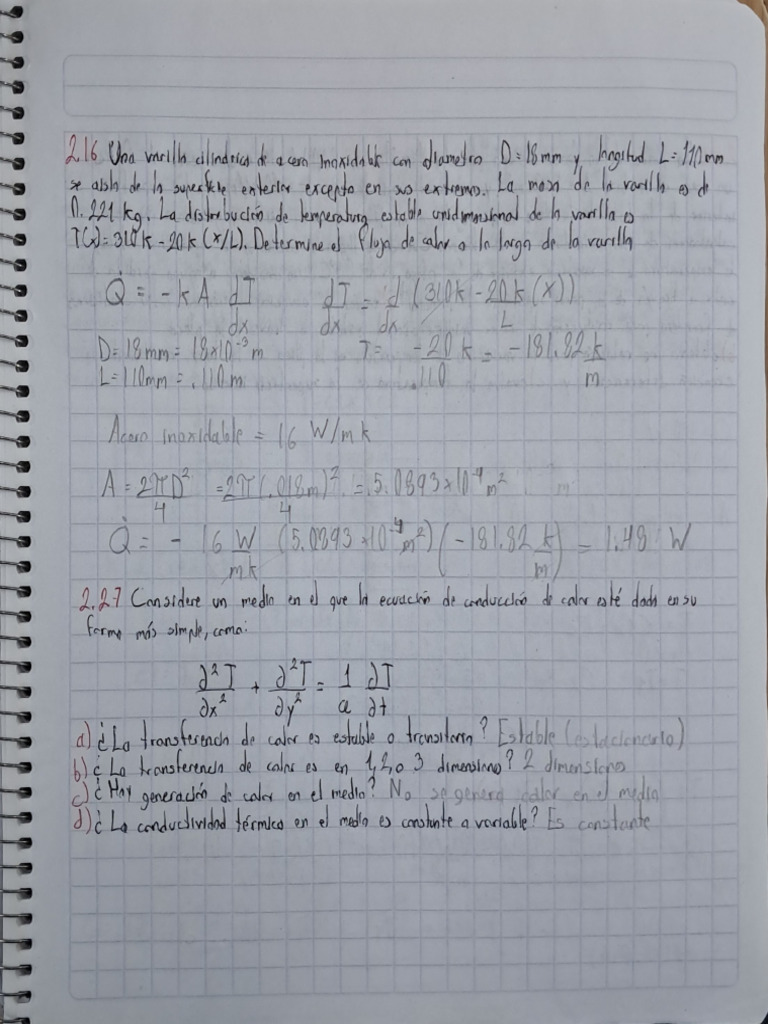 2.16 Una varilla cilindrica de acero inoxidable con diametro D=18mm y longitud L=110mm
se aisla de la superficie exterior excepto en sus extremos. La masa de la varilla es d
0.221 kg. La distribución de temperatura estable unidimensional de la varilla es
T(x)=310k-20k(x/L). Determine el flujo de calor a lo largo de la varilla
Q̇ = -kA dT/dx   dT/dx = d/dx (310k-20k(x/L))
D=18mm=18x10⁻³m   T= -20k/.110 = -181.82 k/m
L=110mm=.110m
Acero inoxidable = 16 W/mk
A = 2πD²/4 = 2π(.018m)²/4 = 5.0893x10⁻⁴m²
Q̇ = - 16 W/mk (5.0893x10⁻⁴m²)(-181.82 k/m) = 1.48 W
2.27 Considere un medio en el que la ecuación de conducción de calor esté dada en su
forma más simple, como:
∂²T/∂x² + ∂²T/∂y² = 1/a ∂T/∂t
a) ¿La transferencia de calor es estable o transitoria? Estable (estacionario)
b) ¿La transferencia de calor es en 1,2,o 3 dimensiones? 2 dimensiones
c) ¿Hay generación de calor en el medio? No se genera calor en el medio
d) ¿La conductividad térmica en el medio es constante o variable? Es constante